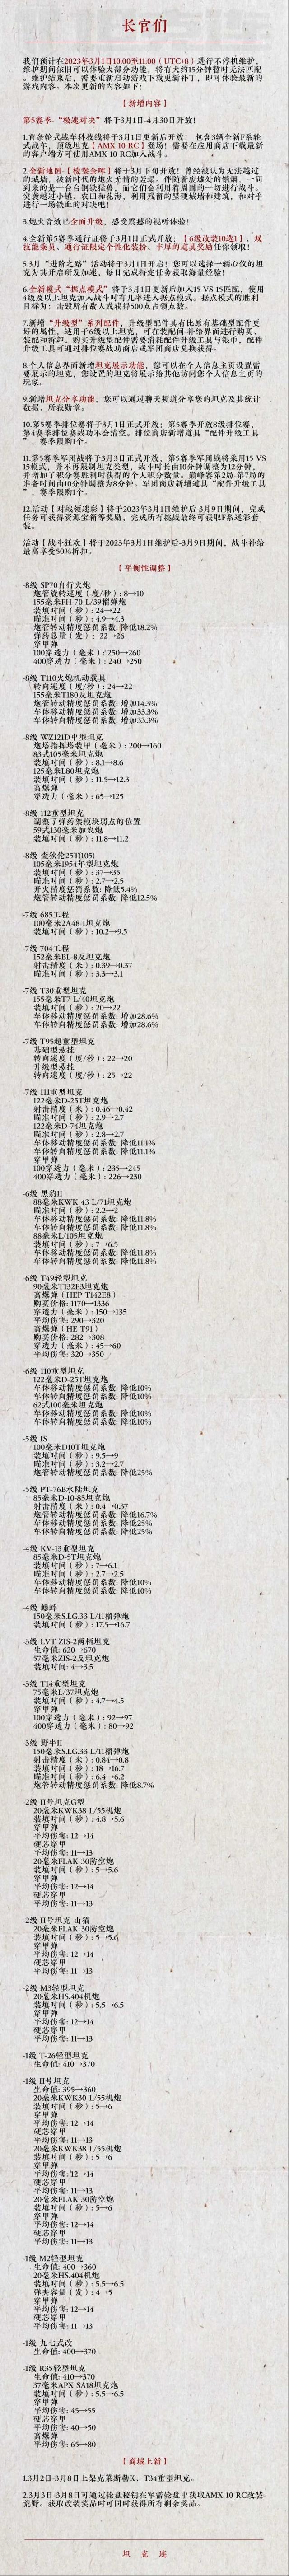 长官们
我们预计在2023年3月1日10:00至11:00（UTC+8）进行不停机维护，
维护期间依旧可以体验大部分功能，将有大约15分钟暂时无法匹配
。维护结束后，需要重启手动游戏下载更新补丁，即可体验最新的
游戏内容。本次更新的内容如下：
【新增内容】
第5赛季·“极速对决”将于3月1日-4月30日开放！
1.首条轮式战车科技线将于3月1日更新后开放！ 包含3辆全新F系轮
式战车，顶级坦克【AMX 10 RC】登场！需要在应用商店下载最新
的客户端方可使用AMX 10 RC加入战斗。
2.全新地图-【棱堡余晖】将于3月下旬开放！曾经被认为无法越过
的城墙，被新时代的炮火无情的轰塌。伴随着废墟处的硝烟，一同
到来的是一台台钢铁猛兽，而它们将用着周围的一切进行战斗。
突袭越过小镇、农田和花海，利用残留的坚硬城墙和建筑，和对手
进行一场铁血的对决吧！
3.炮火音效已全面升级，感受震撼的视听体验！
4.全新第5赛季通行证将于3月1日正式开放；【6级改装10选1】、双
技能乘员、通行证限定个性化装扮、丰厚的道具奖励任你领取！
5.3月“进阶之路”活动将于3月1日开启！您可以选择一辆心仪的坦
克为其开启研发加速，每日完成特定任务获取海量经验！
6.全新模式“据点模式”将于3月1日更新后加入15 VS 15匹配，使用
4级及以上坦克加入战斗时有几率进入据点模式。据点模式的胜利
目标为：击毁所有敌人或获得900点占领点数。
7.新增“升级型”系列配件，升级型配件具有比原有基础型配件更
好的属性，适用于6级以上坦克，可在装配间-补给界面进行购买、
装配和拆卸。购买升级型配件需要消耗配件升级工具与银币，配件
升级工具可通过排位赛战功商店或军团商店兑换获得。
8.个人信息界面新增坦克展示功能，您可以在个人信息主页设置需
要展示的坦克，您设置的坦克将展示给其他访问您个人信息主页的
玩家。
9.新增坦克分享功能，您可以通过聊天频道分享您的坦克及其统计
数据、所获勋章。
10.第5赛季排位赛将于3月1日正式开放；第5赛季开放8级排位赛，
第4赛季排位赛战功不会清空。排位商店新增道具“配件升级工具
”，赛季限购1个。
11.第5赛季军团战将于3月3日正式开放，第5赛季军团战将采用15 VS
15模式，并不再限制坦克类型，战斗时长由10分钟调整为12分钟，
并增加了积分赛胜利时获得的个人积分数量，巅峰赛第2局-第7局的
准备时间由5分钟调整为8分钟。军团商店新增道具“配件升级工具
”，赛季限购1个。
12.活动【对战领迷彩】将于2023年3月1日维护后-3月9日期间，完成
任务可获得资源宝箱等奖励，完成所有挑战最终可获取F系迷彩套
装。
活动【战斗狂欢】将于2023年3月1日维护后-3月9日期间，战斗补给
最高享受50%折扣。
【平衡性调整】
-8级 SP70自行火炮
炮管旋转速度（度/秒）: 8→10
155毫米FH-70 L/39榴弹炮
装填时间（秒）: 24→22
瞄准时间（秒）: 4.9→4.3
炮管转动精度惩罚系数: 降低18.2%
弹药总量（发）: 22→26
穿甲弹
100穿透力（毫米）: 250→260
400穿透力（毫米）: 240→250
-8级 T110火炮机动载具
转向速度（度/秒）: 24→22
155毫米T180反坦克炮
炮管转动精度惩罚系数: 增加14.3%
车体移动精度惩罚系数: 增加33.3%
车体转向精度惩罚系数: 增加33.3%
-8级 WZ121D中型坦克
炮塔指挥塔装甲（毫米）: 200→160
83式105毫米坦克炮
装填时间（秒）: 8.1→8.6
125毫米L80坦克炮
装填时间（秒）: 11.5→12.3
高爆弹
穿透力（毫米）: 65→125
-8级 112重型坦克
调整了弹药架模块弱点的位置
59式130毫米加农炮
装填时间（秒）: 11.8→11.2
-8级 查狄伦25T(105)
105毫米1954年型坦克炮
装填时间（秒）: 37→35
瞄准时间（秒）: 2.7→2.5
开火精度惩罚系数: 降低5.4%
炮管转动精度惩罚系数: 降低12.5%
-7级 685工程
100毫米2A48-1坦克炮
装填时间（秒）: 10.2→9.5
-7级 704工程
152毫米BL-8反坦克炮
射击精度（米）: 0.39→0.37
瞄准时间（秒）: 3.3→3.1
-7级 T30重型坦克
155毫米T7 L/40坦克炮
装填时间（秒）: 20→22
车体移动精度惩罚系数: 增加28.6%
车体转向精度惩罚系数: 增加28.6%
-7级 T95超重型坦克
基础型悬挂
转向速度（度/秒）: 22→20
升级型悬挂
转向速度（度/秒）: 25→22
-7级 111重型坦克
122毫米D-25T坦克炮
射击精度（米）: 0.46→0.42
瞄准时间（秒）: 2.9→2.7
122毫米D-74坦克炮
瞄准时间（秒）: 2.8→2.7
车体移动精度惩罚系数: 降低11.1%
车体转向精度惩罚系数: 降低11.1%
穿甲弹
100穿透力（毫米）: 235→245
400穿透力（毫米）: 226→230
-6级 黑豹II
88毫米KWK 43 L/71坦克炮
瞄准时间（秒）: 2.2→2
车体移动精度惩罚系数: 降低11.8%
车体转向精度惩罚系数: 降低11.8%
88毫米L/105坦克炮
装填时间（秒）: 7→6.5
车体移动精度惩罚系数: 降低11.8%
车体转向精度惩罚系数: 降低11.8%
-6级 T49轻型坦克
90毫米T132E3坦克炮
高爆弹（HEP T142E8）
购买价格: 1170→1336
穿透力（毫米）: 150→135
平均伤害: 290→320
高爆弹（HE T91）
购买价格: 282→308
穿透力（毫米）: 45→60
平均伤害: 320→350
-6级 110重型坦克
122毫米D-25T坦克炮
车体移动精度惩罚系数: 降低10%
车体转向精度惩罚系数: 降低10%
62式100毫米坦克炮
车体移动精度惩罚系数: 降低10%
车体转向精度惩罚系数: 降低10%
-5级 IS
100毫米D10T坦克炮
装填时间（秒）: 9.5→9
瞄准时间（秒）: 3.2→2.7
炮管转动精度惩罚系数: 降低25%
-5级 PT-76B水陆坦克
85毫米D-10-85坦克炮
射击精度（米）: 0.4→0.37
炮管转动精度惩罚系数: 降低16.7%
车体移动精度惩罚系数: 降低25%
车体转向精度惩罚系数: 降低25%
-4级 KV-13重型坦克
85毫米D-5T坦克炮
装填时间（秒）: 7→6.1
瞄准时间（秒）: 2.7→2.5
车体移动精度惩罚系数: 降低10%
车体转向精度惩罚系数: 降低10%
-4级 蟋蟀
150毫米S.I.G.33 L/11榴弹炮
装填时间（秒）: 17.5→16.7
-3级 LVT ZIS-2两栖坦克
生命值: 620→670
57毫米ZIS-2反坦克炮
装填时间（秒）: 4→3.5
-3级 T14重型坦克
75毫米L/37坦克炮
装填时间（秒）: 4.7→4.5
穿甲弹
100穿透力（毫米）: 92→97
400穿透力（毫米）: 80→92
-3级 野牛II
150毫米S.I.G.33 L/11榴弹炮
射击精度（米）: 0.84→0.8
装填时间（秒）: 18→16.7
瞄准时间（秒）: 6.4→6.2
炮管转动精度惩罚系数: 降低8.7%
-2级 II号坦克G型
20毫米KWK38 L/55机炮
装填时间（秒）: 4.8→5.6
穿甲弹
平均伤害: 12→14
硬芯穿甲
平均伤害: 11→13
20毫米FLAK 30防空炮
装填时间（秒）: 5→5.6
穿甲弹
平均伤害: 12→14
硬芯穿甲
平均伤害: 11→13
-2级 II号坦克 山猫
20毫米FLAK 30防空炮
装填时间（秒）: 5→5.6
穿甲弹
平均伤害: 12→14
硬芯穿甲
平均伤害: 11→13
-2级 M3轻型坦克
20毫米HS.404机炮
装填时间（秒）: 5.5→6.5
穿甲弹
平均伤害: 12→14
硬芯穿甲
平均伤害: 11→13
-1级 T-26轻型坦克
生命值: 410→370
-1级 II号坦克
生命值: 395→360
20毫米KWK30 L/55机炮
装填时间（秒）: 5→6
穿甲弹
平均伤害: 12→14
硬芯穿甲
平均伤害: 11→13
20毫米KWK38 L/55机炮
装填时间（秒）: 5→6
穿甲弹
平均伤害: 12→14
硬芯穿甲
平均伤害: 11→13
20毫米FLAK 30防空炮
装填时间（秒）: 5→6
穿甲弹
平均伤害: 12→14
硬芯穿甲
平均伤害: 11→13
-1级 M2轻型坦克
生命值: 400→360
20毫米HS.404机炮
装填时间（秒）: 5.5→6.5
弹夹容量（发）: 4→5
穿甲弹
平均伤害: 12→14
硬芯穿甲
平均伤害: 11→13
-1级 九七式改
生命值: 400→370
-1级 R35轻型坦克
生命值: 410→370
37毫米APX SA18坦克炮
装填时间（秒）: 5.5→6.5
穿甲弹
平均伤害: 45→55
硬芯穿甲
平均伤害: 40→50
高爆弹
平均伤害: 65→80
【商城上新】
1.3月2日-3月8日上架克莱斯勒K、T34重型坦克。
2.3月3日-3月8日可通过轮盘秘钥在军需轮盘中获取AMX 10 RC改装-
荒野。获取改装奖品时可同时获得所有剩余奖品。
坦 克 连